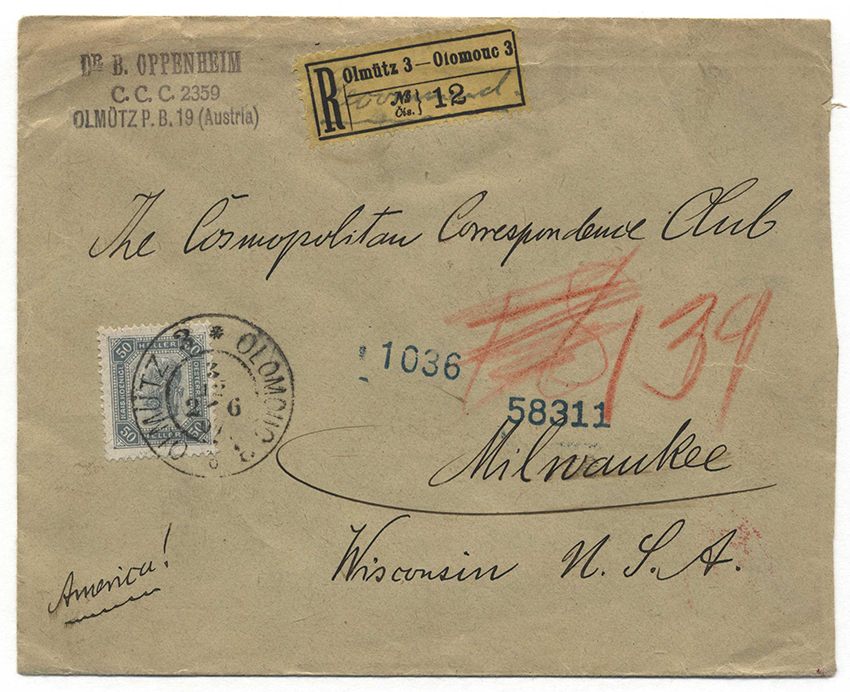 DR B. OPPENHEIM
C. C. C. 2359
OLMÜTZ P. B. 19 (Austria)
R
Olmütz 3 — Olomouc 3
№
Čis. } 12
The Cosmopolitan Correspondence Club
139
1036
58311
Milwaukee
Wisconsin U. S. A.
America!
50 HELLER 50
50 50
OLMÜTZ 3 * OLOMOUC 3
2 6